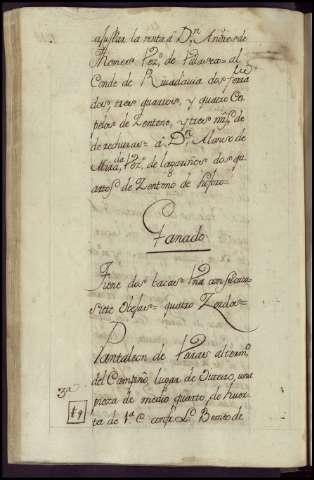 ajustar la renta á Dn. Andres de
Romero Vezo. de
Conde de Rivadavia dos ferra
dos, tres quartos, y quatro Co
pelos de Zenteno, y tres mrs. de
derechuras = á Dn. Alonso de
Mirada, Vo. de dos qu
artos. de Zenteno de fuero =
Ganado
Tiene dos bacas = Una con su cria =
siete Obejas = quatro Zerdos =
Pantaleon de Varas al termo.
del Campiño, lugar de Outeiro, una
pieza de medio quarto, de huer
ta de 1a. C. confa. L. Benito de
3a.